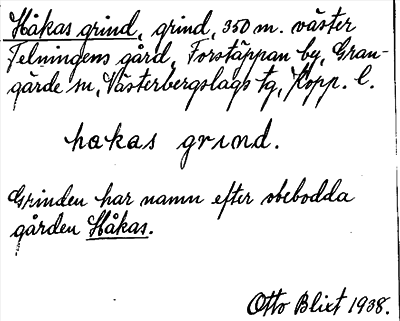 Håkas grind, grind, 350 m. väster
Felningens gård, Forstäppan by, Gran-
gärde sn, Västerbergslags tg, Kopp. l.
hakas grind.
Grinden har namn efter obebodda
gården Håkas.
Otto Blixt 1938.